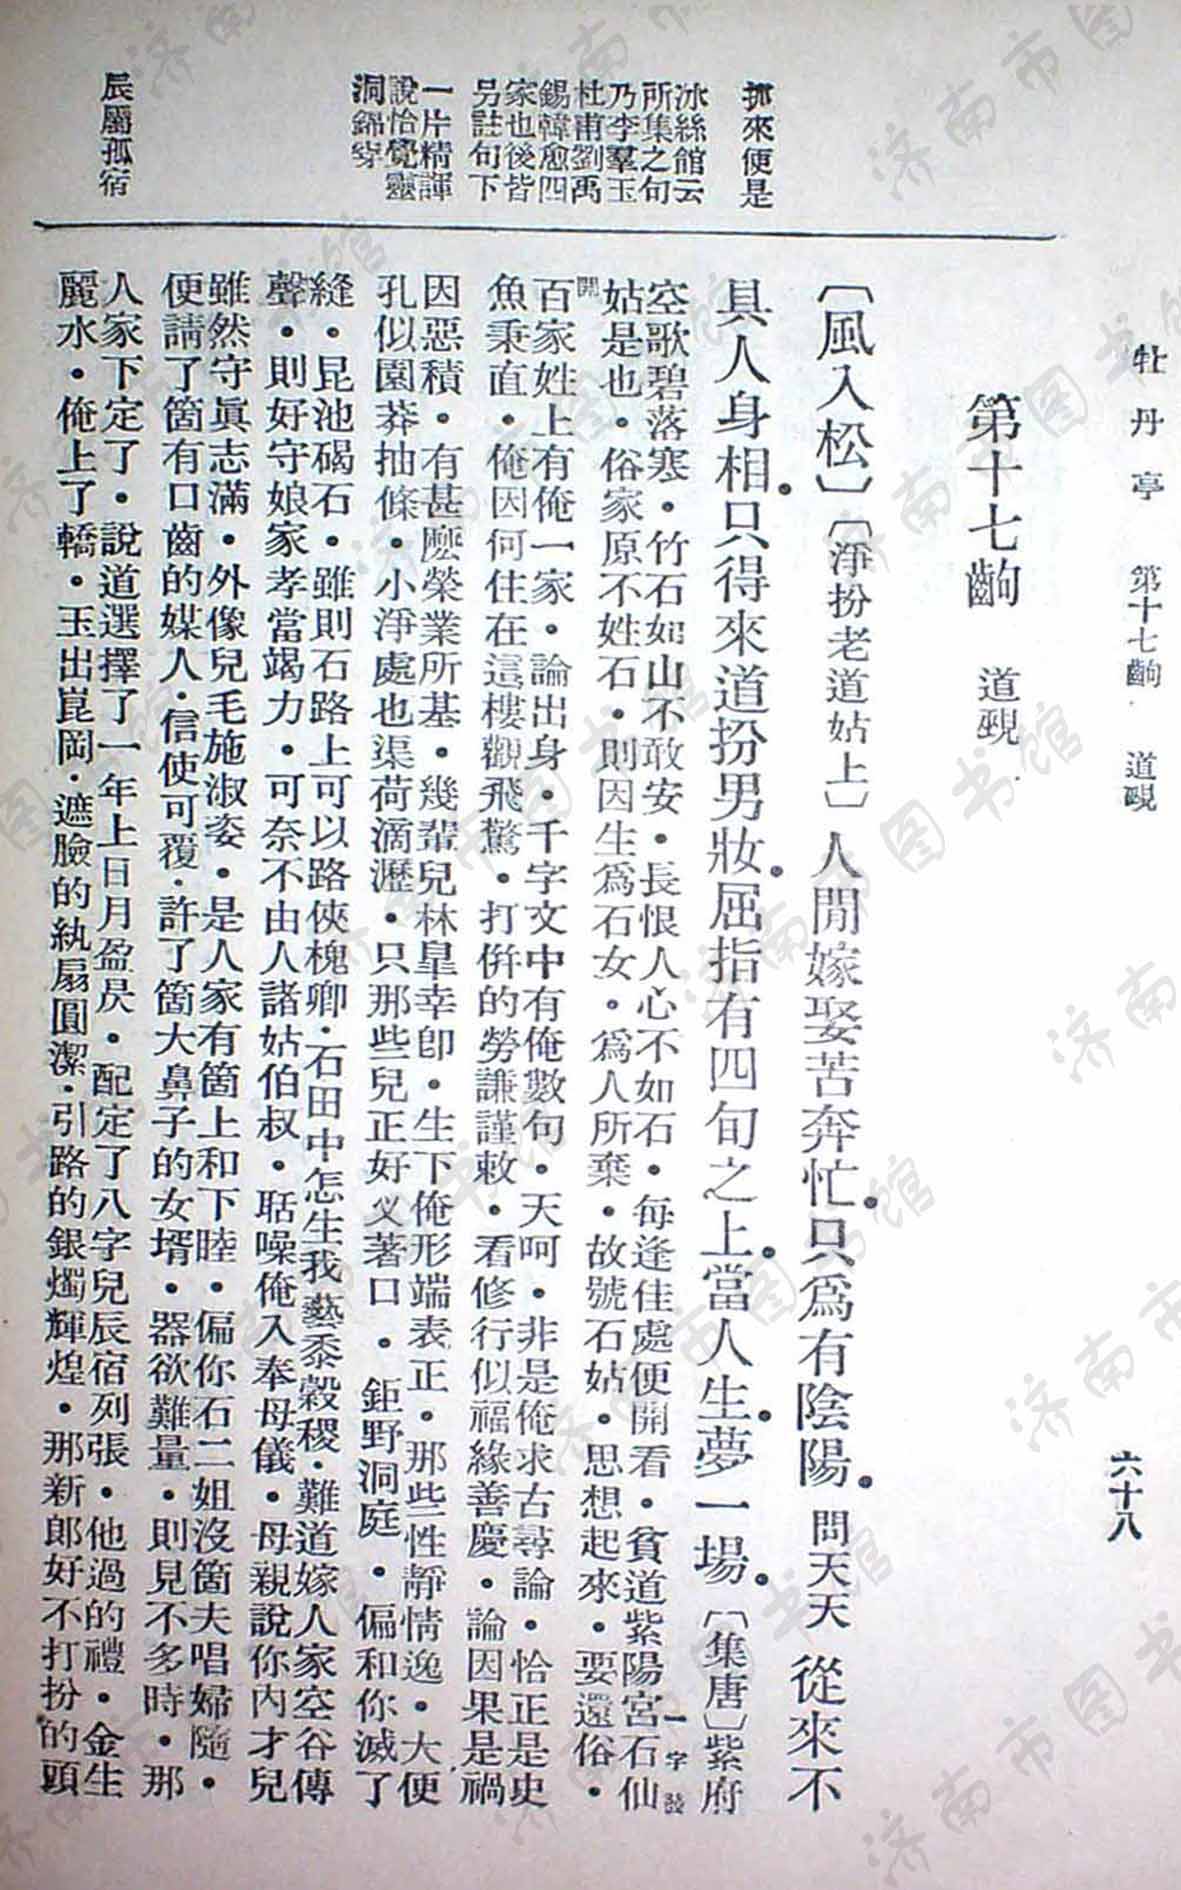 牡丹亭　第十七齣　道覡　六十八
第十七齣　道覡
〔風入松〕〔淨扮老道姑上〕人間嫁娶苦奔忙．只爲有陰陽．問天天　從來不
具人身相．只得來道扮男妝．屈指有四旬之上．當人生．夢一場．〔集唐〕紫府
空歌碧落寒．竹石如山不敢安．長恨人心不如石．每逢佳處便開看．貧道紫陽宮石仙
姑是也．俗家原不姓石．則因生爲石女．爲人所棄．故號石姑．思想起來．要還俗．
百家姓上有俺一家．論出身．千字文中有俺數句．天呵．非是俺求古尋論．恰正是史
魚秉直．俺因何住在這樓觀飛驚．打併的勞謙謹敕．看修行似福緣善慶．論因果是禍
因惡積．有甚麼榮業所基．幾輩兒林皐幸卽．生下俺形端表正．那些性靜情逸．大便
孔似園莽抽條．小淨處也渠荷滴瀝．只那些兒正好叉著口．鉅野洞庭．偏和你滅了
縫．昆池碣石．雖則石路上可以路俠槐卿．石田中怎生我藝黍稷．難道嫁人家空谷傳
聲．則好守娘家孝當竭力．可奈不由人諸姑伯叔．聒噪俺入奉母儀．母親說你內才兒
雖然守眞志滿．外像兒毛施淑姿．是人家有箇上和下睦．偏你石二姐沒箇夫唱婦隨．
便請了箇有口齒的媒人．信使可覆．許了箇大鼻子的女壻．器欲難量．則見不多時．那
人家下定了．說道選擇了一年上日月盈昃．配定了八字兒辰宿列張．他過的禮．金生
麗水．俺上了轎．玉出崑岡．遮臉的紈扇圓潔．引路的銀燭輝煌．那新郎好不打扮的頭
抓來便是
冰絲館云
所集之句
乃李羣玉
杜甫劉禹
錫韓愈四
家也後皆
另註句下
一片精諢
說恰覺靈
洞錦穿
辰屬孤宿
济南市图书馆